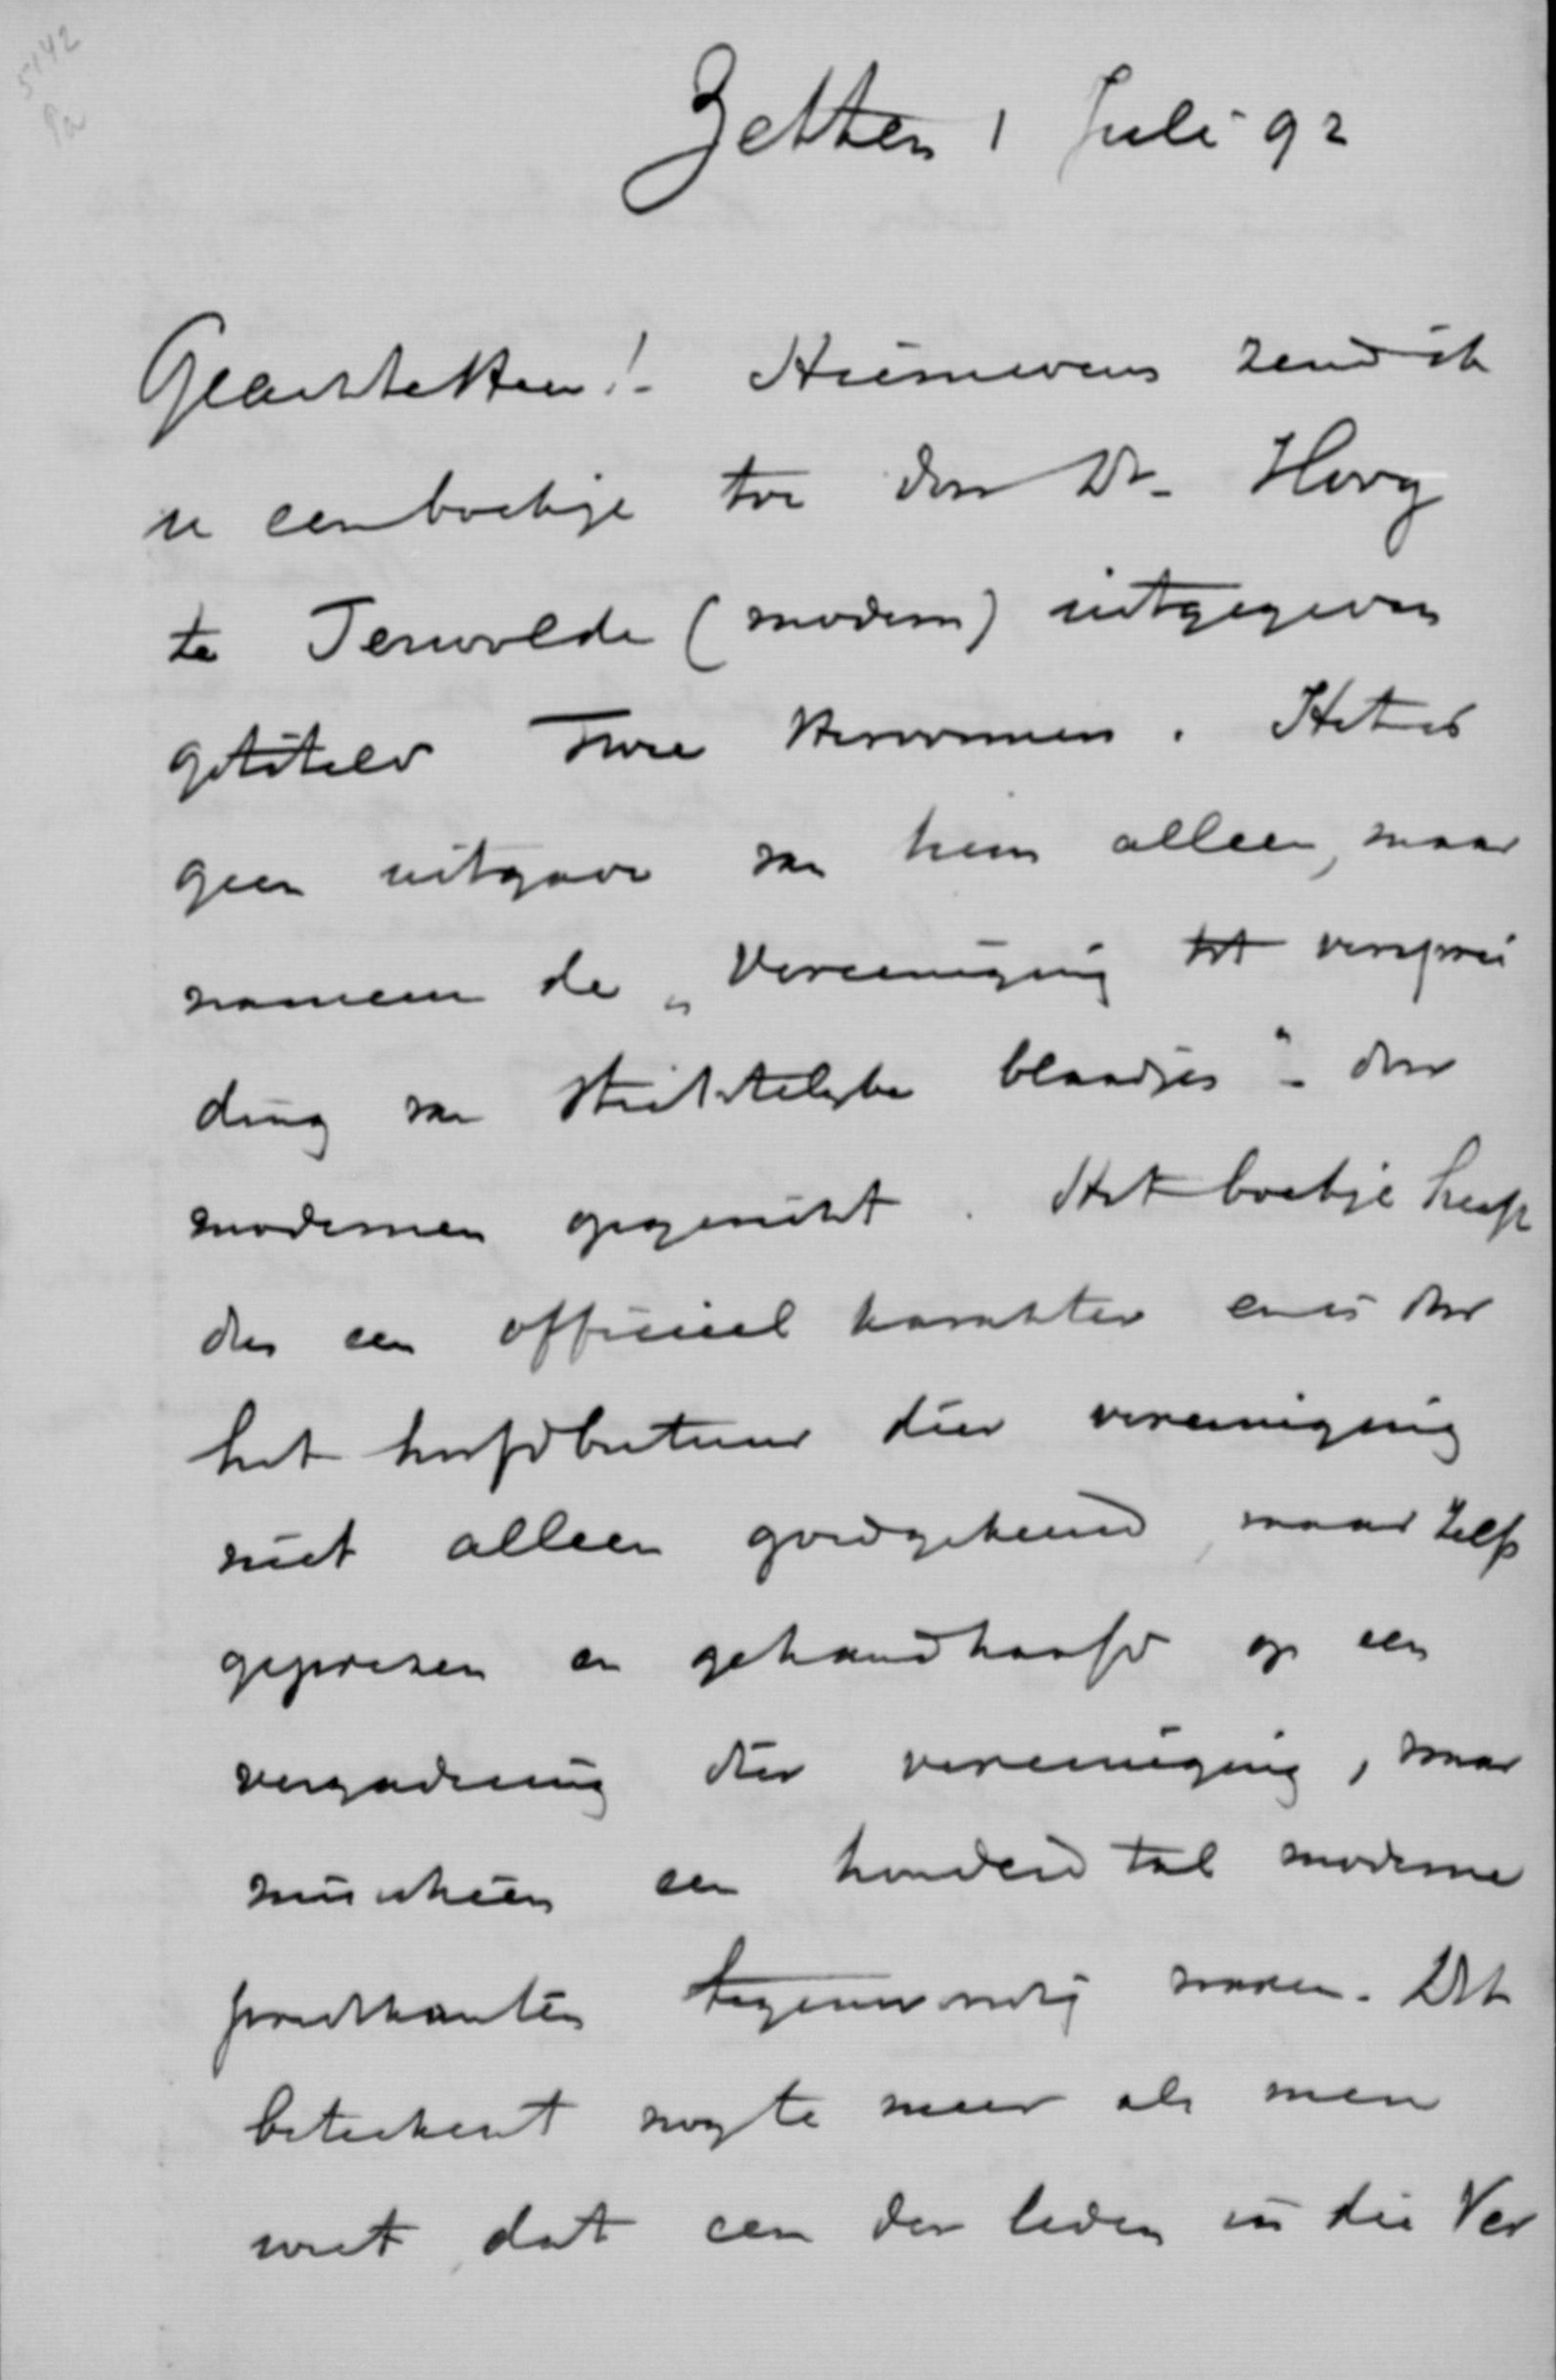 5142
Pa
Zetten 1 Juli 92
Geachte Heer! Hiernevens zend ik
u een boekje door Dr. Hovy
te Terwolde (modern) uitgegeven
getiteld Twee . Het is
geen uitgave van hem alleen, maar
namens de „Vereeniging tot versprei
ding van stichtelijke blaadjes" door
modernen gesticht. Het boekje heeft
dus een officieel karakter en is door
het hoofdbestuur dier vereeniging
niet alleen goedgekeurd, maar zelfs
geprezen en gehandhaafd op een
vergadering dier vereeniging, waar
misschien een honderd tal moderne
predikanten tegenwoordig waren. Dit
beteekent nog te meer als men
weet, dat een der leden in die Ver